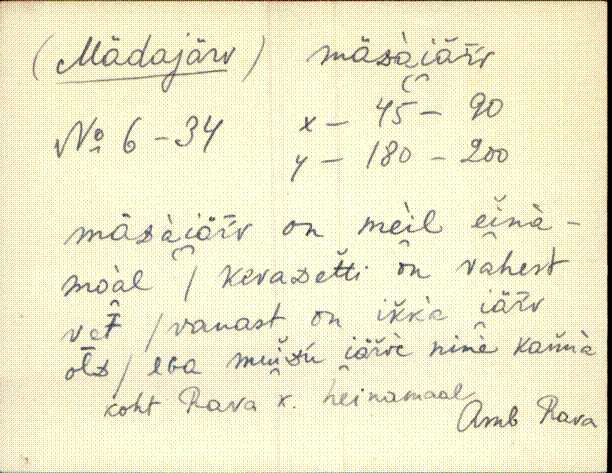 (Mädajärv) mäsàiäřv
No 6 - 34 x - 45 - 90
y - 180 - 200
mäsàiäřv on mèil eĭnà-
moàl / kevasètti on vàhest
vet / vanast on ikkà iäřv
õls / eba muisu iäřvè ninè kannà
koht Rava k. heinamaal
Amb Rava